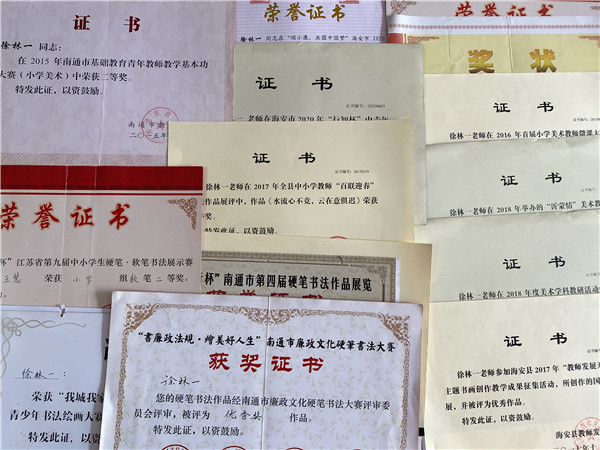 证书
徐林一 同志：
在 2015 年南通市基础教育青年教师教学基本功
大赛（小学美术）中荣获二等奖。
特发此证，以资鼓励。
南通市教
二〇一五年
荣誉证书
徐林一 同志在“颂小康，共圆中国梦”海安市 2020
奖状
证书
证书编号：20200603
老师在海安市 2020 年“行知杯”中青年
证书
证书编号：20170229
徐林一老师在 2017 年全县中小学教师“百联迎春”
作品展评中，作品《水流心不竞，云在意俱迟》荣获
等奖。
特发此证，以资鼓励。
证书
徐林一老师在 2016 年首届小学美术教师微课上
证书
徐林一老师在 2018 年举办的“沂蒙情”美术教
证书
徐林一老师在 2018 年度美术学科教研活动
证书
徐林一老师参加海安县 2017 年“教师发展
主题书画创作教学成果征集活动，所创作的国
展，并被评为优秀作品。
特发此证，以资鼓励。
海安县教师发
二〇一七年十
荣誉证书
杯”江苏省第九届中小学生硬笔·软笔书法展示赛
荣获 小学 组软笔二等奖。
特发此证，以资鼓励。
杯”南通市第四届硬笔书法作品展览
“書廉政法规·繪美好人生”南通市廉政文化硬筆書法大賽
获奖证书
徐林一
您的硬笔书法作品经南通市廉政文化硬笔书法大赛评审委
员会评审，被评为 优秀奖 作品。
特发此证，以资鼓励。
徐林一：
荣获“我城我家
青少年书法绘画大赛
特发此证，以资